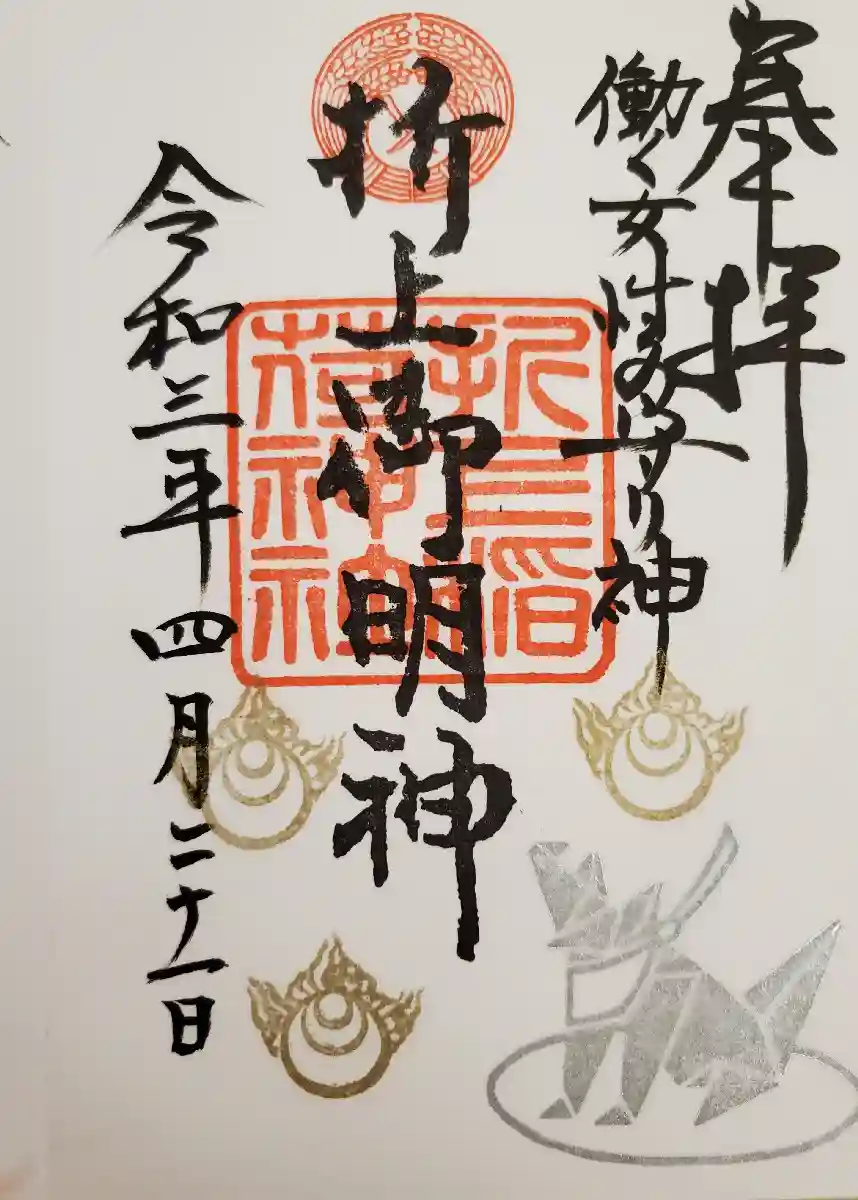 奉拝
働く女性の守り神
折上御明神
折上稲荷神社
令和三年四月二十一日